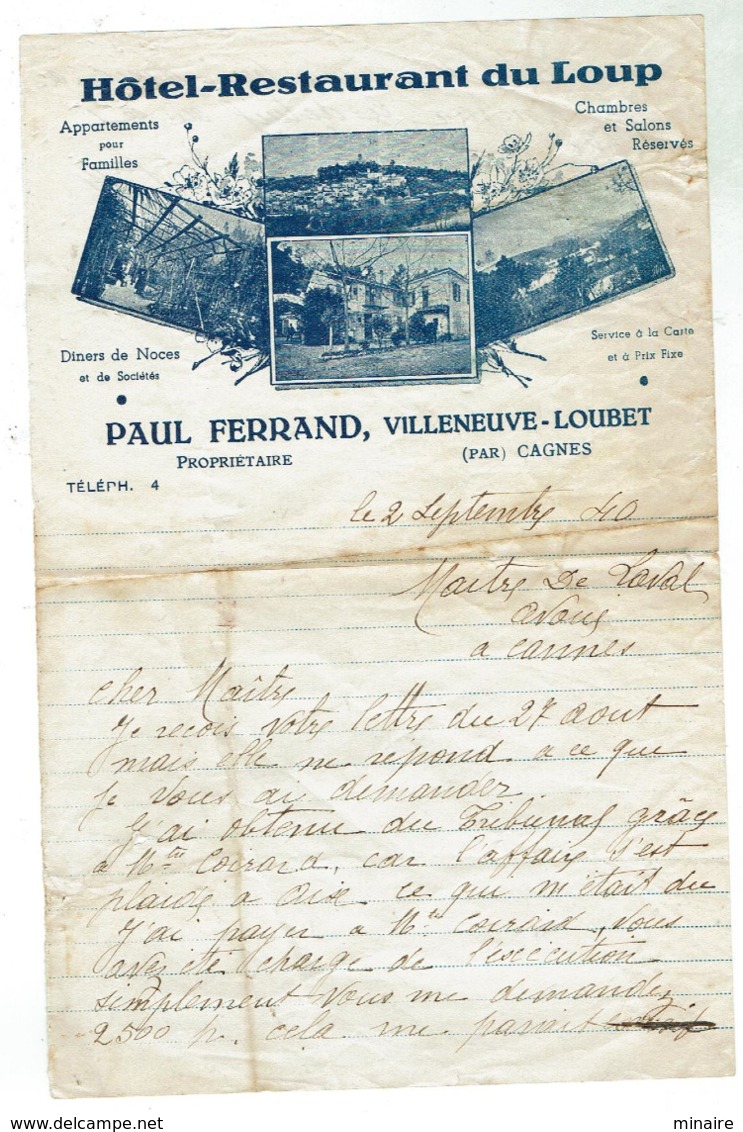 Hôtel-Restaurant du Loup
Appartements
pour
Familles
Chambres
et Salons
Réservés
Diners de Noces
et de Sociétés
Service à la Carte
et à Prix Fixe
PAUL FERRAND, VILLENEUVE-LOUBET
PROPRIÉTAIRE
(PAR) CAGNES
TÉLÉPH. 4
le 2 Septembre 40
Maitre De Laval
avoué
a Cannes
Cher Maître
Je recois votre lettre du 27 aout
mais elle ne repond a ce que
je vous ai demander.
J'ai obtenu du Tribunal grâce
a Mtre Coirard, car l'affaire s'est
plaidé a Aix ce qui m'était du
J'ai payer a Mtre Coirard, Vous
avez été chargé de l'exécution
simplement Vous me demandez
2500 f. cela me parait
minaire